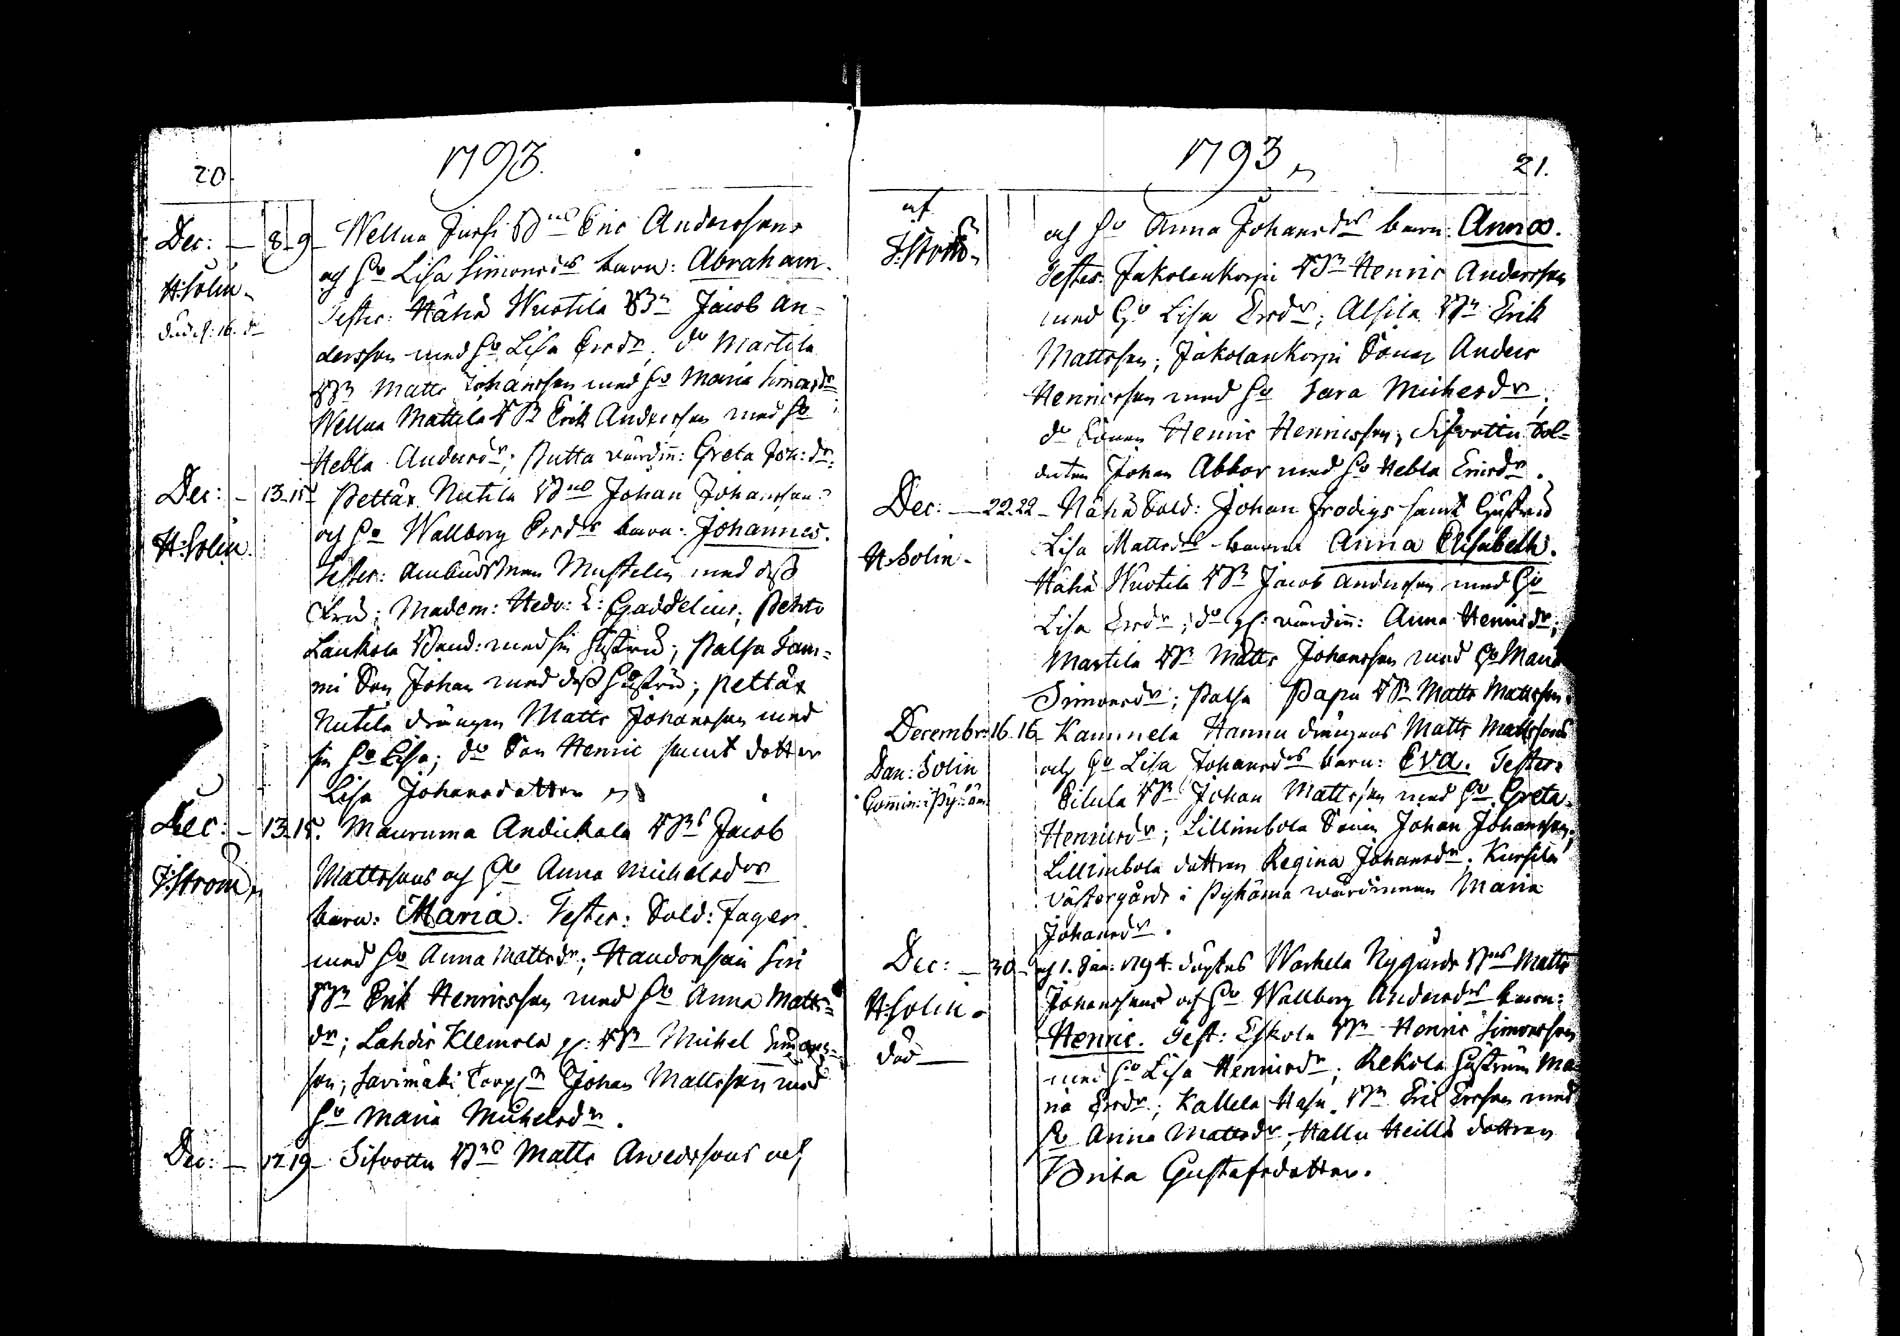 20.
1793.
Dec: — 8. 9. Wellua Jussi Bns Eric Anderssons
och Ho Lisa Simonsdrs barn: Abraham.
H: Solin.
Test: Hähä Wuotila Bn Jacob An-
död d: 16. do
dersson med Ho Lisa Ersdr; do Martila
Bn Matts Johansson med Ho Maria Simonsdr
Wellua Mattila Bn Erik Andersson med Ho
Hebla Andersdr; värdin: Greta Joh:dr.
Dec: — 13. 15. Pettäx Nutila Bns Johan Johanssons
och Ho Wallborg Ersdrs barn: Johannes.
H: Solin.
Tester: Ambudsman Mustelin med dess
Fru; Madem: Hedv: E: Gaddelius; Pento
Laukola Bend: med sin Hustru; Palsa Sam-
mi Son Johan med dess Hustru; Pettäx
Nutila drängen Matts Johansson med
sin Ho Lisa; do Son Henric samt dotter
Lisa Johansdotter
Dec: — 13. 15. Mauruma Andickala Bns Jacob
Mattssons och Ho Anna Michelsdrs
J: Strom
barn: Maria. Tester: Sold: Jager
med Ho Anna Mattsdr;
Bn Erik Henricsson med Ho Anna Matts-
dr; Lahdis Klemola Bn Michel Simons-
son; Savimäki Torpn Johan Mattsson med
Ho Maria Michelsdr.
Dec: — 17. 19. Sifvottu Bns Matts Arvedssons och
1793
21.
af
J: Strom
och Ho Anna Johansdrs barn: Anna.
Tester: Jakolankorpi Bn Henric Andersson
med Ho Lisa Ersdr; Alsila Bn Erik
Mattsson; Jakolankorpi Sonen Anders
Henricsson med Ho Sara Michelsdr;
do Sonen Henric Henricsson; Sifvottu Sol-
daten Johan Abbor med Ho Hebla Ericsdr.
Dec: — 22. 22. Hähä Sold: Johan Frodigs samt Hustru
Lisa Mattsdrs barn Anna Elisabeth.
H. Solin.
Hähä Wuotila Bn Jacob Andersson med Ho
Lisa Ersdr; do värdin: Anna Henricsdr;
Martila Bn Matts Johansson med Ho Maria
Simonsdr; Palsa Papu Bn Matts Mattsson.
Decembr: 16. 16. Kammela Hannu drängens Matts Mattssons
Dan: Solin
och Ho Lisa Johansdrs barn: Eva. Tester:
Comin: i Pyhäm:
Eilula Bn Johan Mattsson med Ho Greta
Henricsdr; Lillimbola Sonen Johan Johansson;
Lillimbola dottren Regina Johansdr. Kursila
Västergårds i Pyhäma wärdinnan Maria
Johansdr.
Dec: — 30. och 1. Jan: 1794. döptes Warhela Nygårds Bns Matts
H: Solin.
Johanssons och Ho Wallborg Andersdrs barn:
död —
Henric. Test: Eskola Bn Henric Simonsson
med Ho Lisa Henricsdr; Rekola Hustrun Ma-
ria Ersdr; Kallela Hasu Bn Eric Ersson med
Ho Anna Mattsdr; Hallu Heilla dottren
Brita Gustafsdotter.